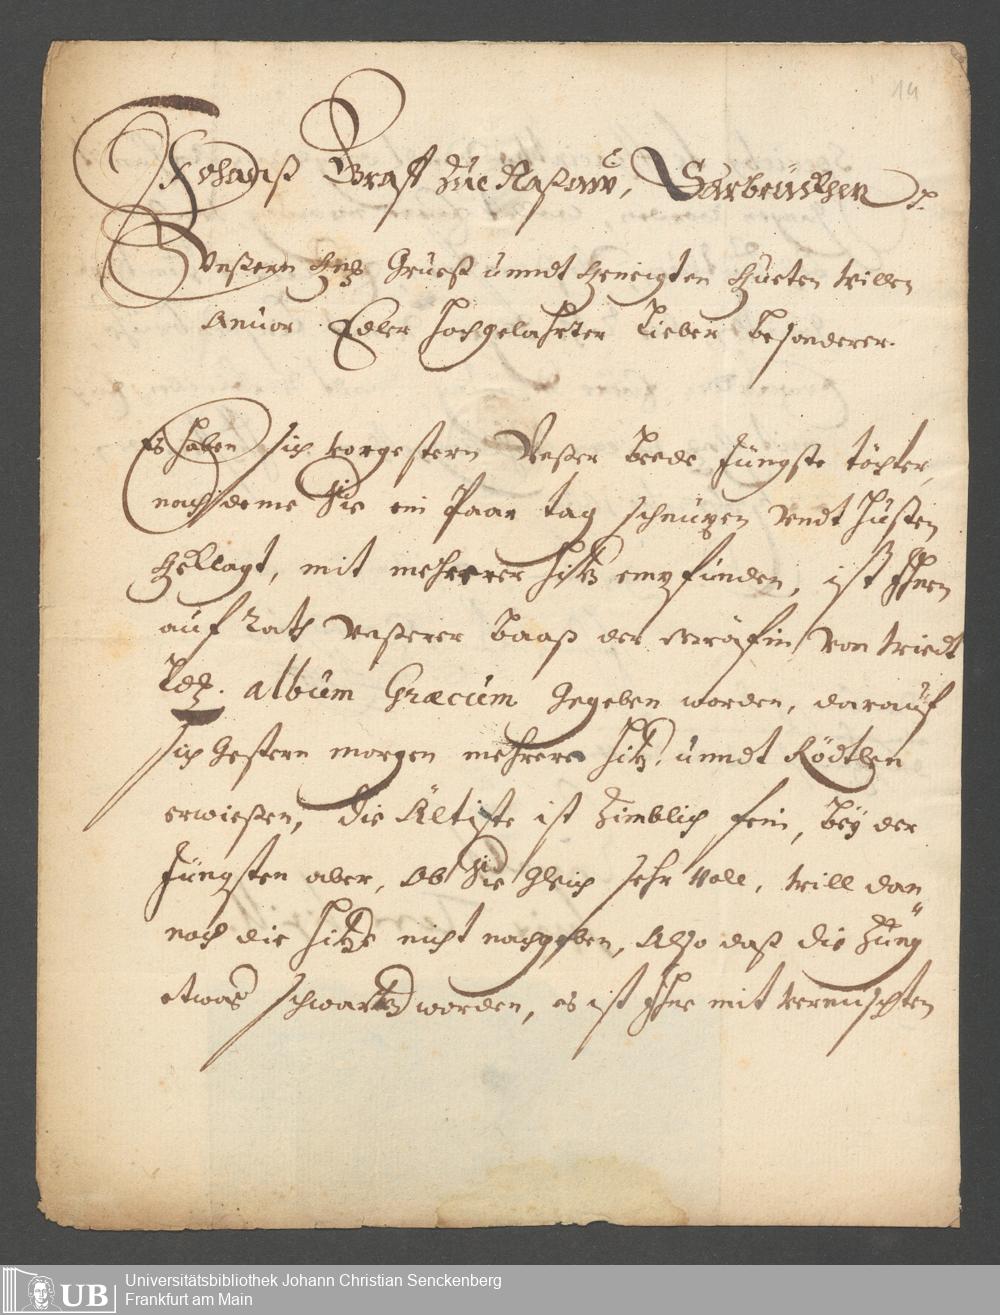 14
Johanß Graff Zue Naßaw, Sarbrücken
Unßern Gruess unndt geneigten gueten willen
Anvor. Edler hochgelahrter Lieber besonderer.
Es haben sich vorgestern Unßer beede Jüngste töchter,
nachdeme Sie ein Paar tag schnupen undt husten
geklagt, mit mehrerer hitz empfunden, ist Ihnen
auf Rath unßerer Baaß der Gräfin von Wiedt
Ld. album Græcum gegeben worden, darauf
sich gestern morgen mehrere hitz unndt Rödtlen
erwießen, die Älteste ist Zimblich fein, bey der
Jüngsten aber, Ob Sie gleich sehr voll, will dan
noch die hitze nicht nachgeben, Also daß die Zung
etwas schwartz worden, es ist Ihr mit vermischten
UB Universitätsbibliothek Johann Christian Senckenberg
Frankfurt am Main